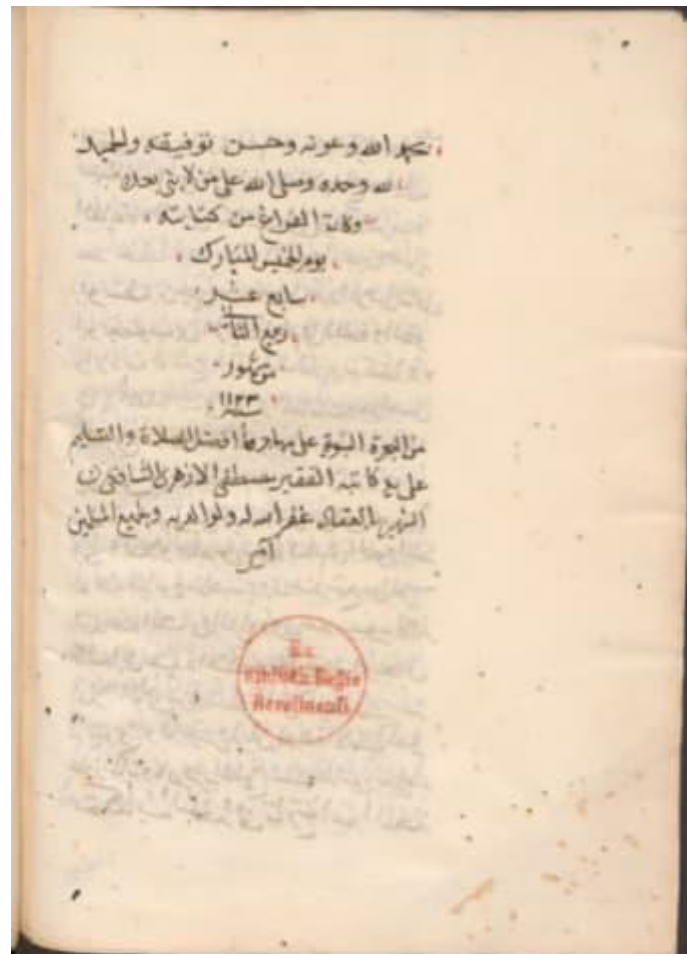 بحمد الله وعونه وحسن توفيقه والحمد
لله وحده وصلى الله على من لا نبي بعده
وكان الفراغ من كتابته
يوم الخميس المبارك
سابع عشر
ربيع الثاني
من شهور
سنة ١١٢٣
من الهجرة النبوية على مهاجرها افضل الصلاة والتسليم
على يد كاتبه الفقير مصطفى الازهري الشافعي
الشهير غفر الله له ولوالديه ولجميع المسلمين
آمين
Ex
Biblioth. Regia
Berolinensi